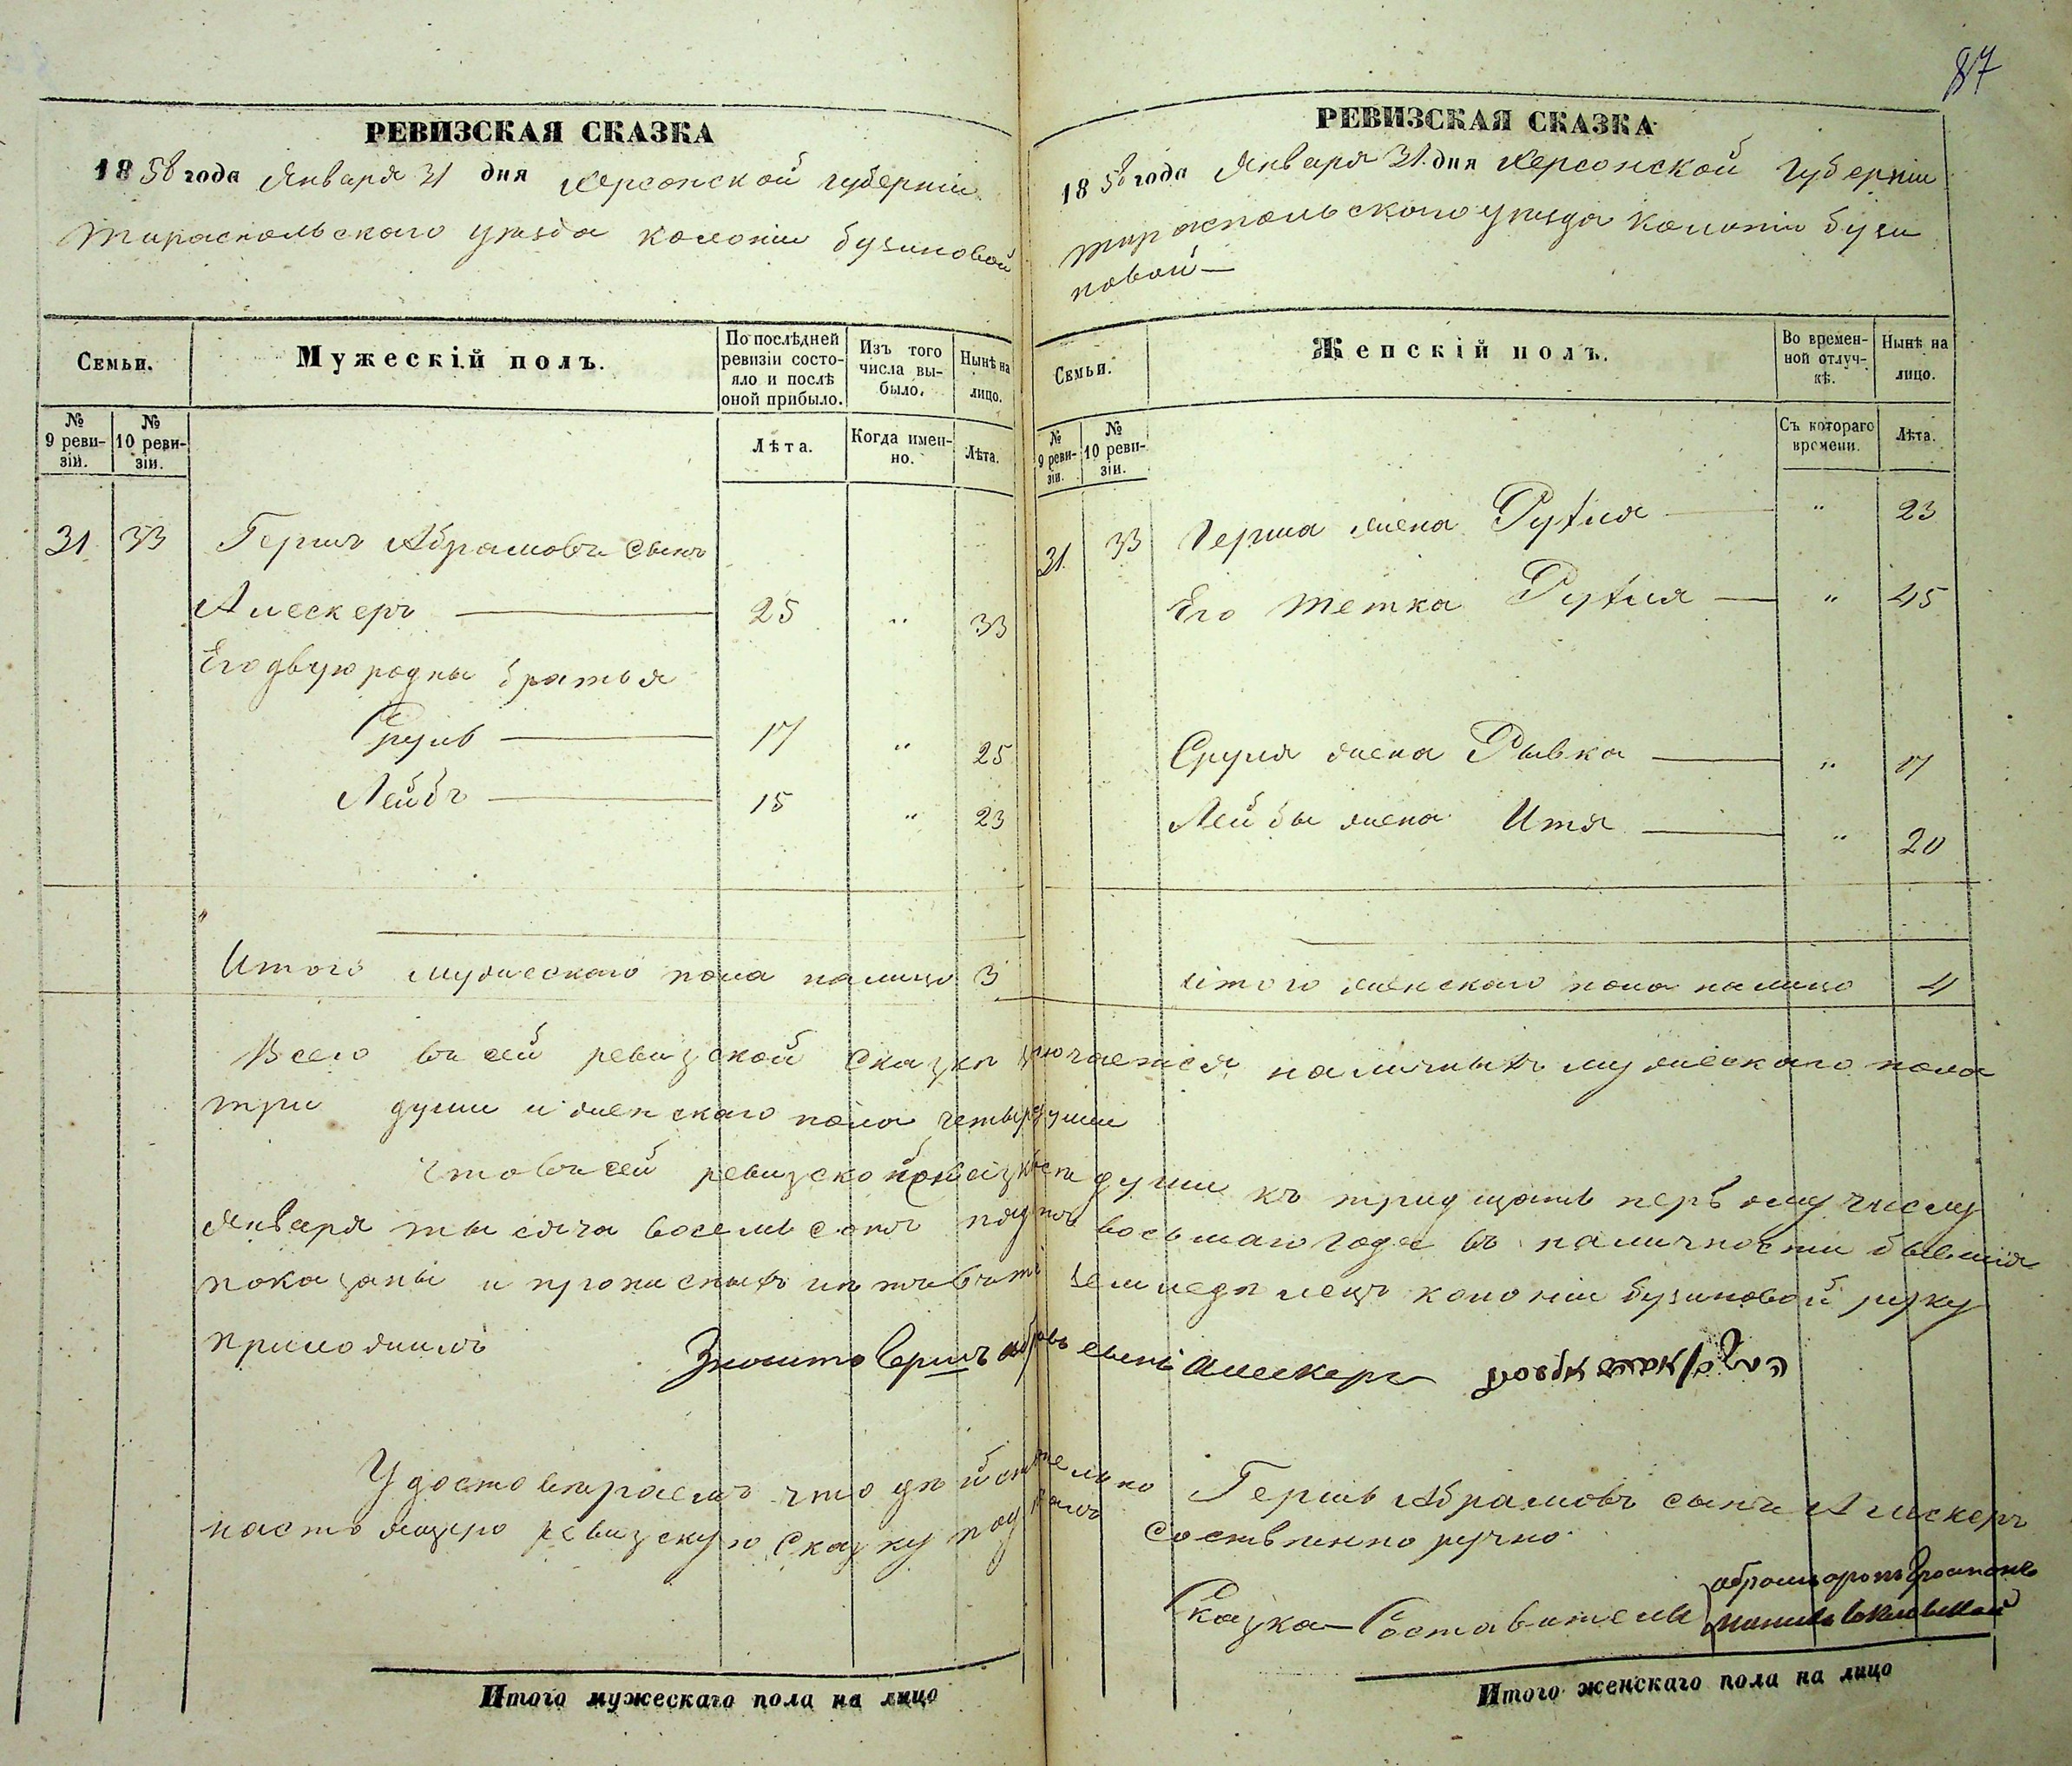 87
РЕВИЗСКАЯ СКАЗКА
1858 года Января 31 дня Херсонской губерніи
Тираспольскаго уѣзда колоніи бузиновой
Семьи.
Мужескій полъ.
По послѣдней ревизіи состо-
яло и послѣ
оной прибыло.
Изъ того
числа вы-
было.
Нынѣ на
лицо.
№
9 реви-
зіи.
№
10 реви-
зіи.
Лѣта.
Когда имен-
но.
Лѣта.
31 33 Гершъ Абрамовъ сынъ
Алескеръ — 25 „ 33
Его двуюродны братья
Сруль — 17 „ 25
Лейбъ — 15 „ 23
Итого мужескаго пола налицо 3
РЕВИЗСКАЯ СКАЗКА
1858 года Января 31 дня Херсонской Губерніи
тираспольскаго уѣзда колоніи бузи
новой —
Семьи.
Женскій полъ.
Во времен-
ной отлуч-
кѣ.
Нынѣ на
лицо.
№
9 реви-
зіи.
№
10 реви-
зіи.
Съ котораго
времени.
Лѣта.
31 33 Герша жена Рухля — „ 23
Его тетка Рухля — „ 45
Сруля жена Рывка — „ 17
Лейбы жена Итя — „ 20
Итого женскаго пола налицо 4
Всего въ сей ревизской сказкѣ наличныхъ мужескаго пола
три души и женскаго пола четыре души
что въ сей ревизской души къ тридцать первому числу
Января тысяча восемь сотъ восьмаго года въ наличности бывшія
показаны и прописныхъ нѣтъ въ томъ земледѣлецъ колоніи бузиновой руку
приложилъ
Гершъ сынъ Алескеръ
Удостовѣряемъ что дѣйствительно Гершъ Абрамовъ сынъ Алескеръ
настоящую ревизскую Сказку подписалъ собственноручно
Сказка-Составители
Итого мужескаго пола на лицо
Итого женскаго пола на лицо